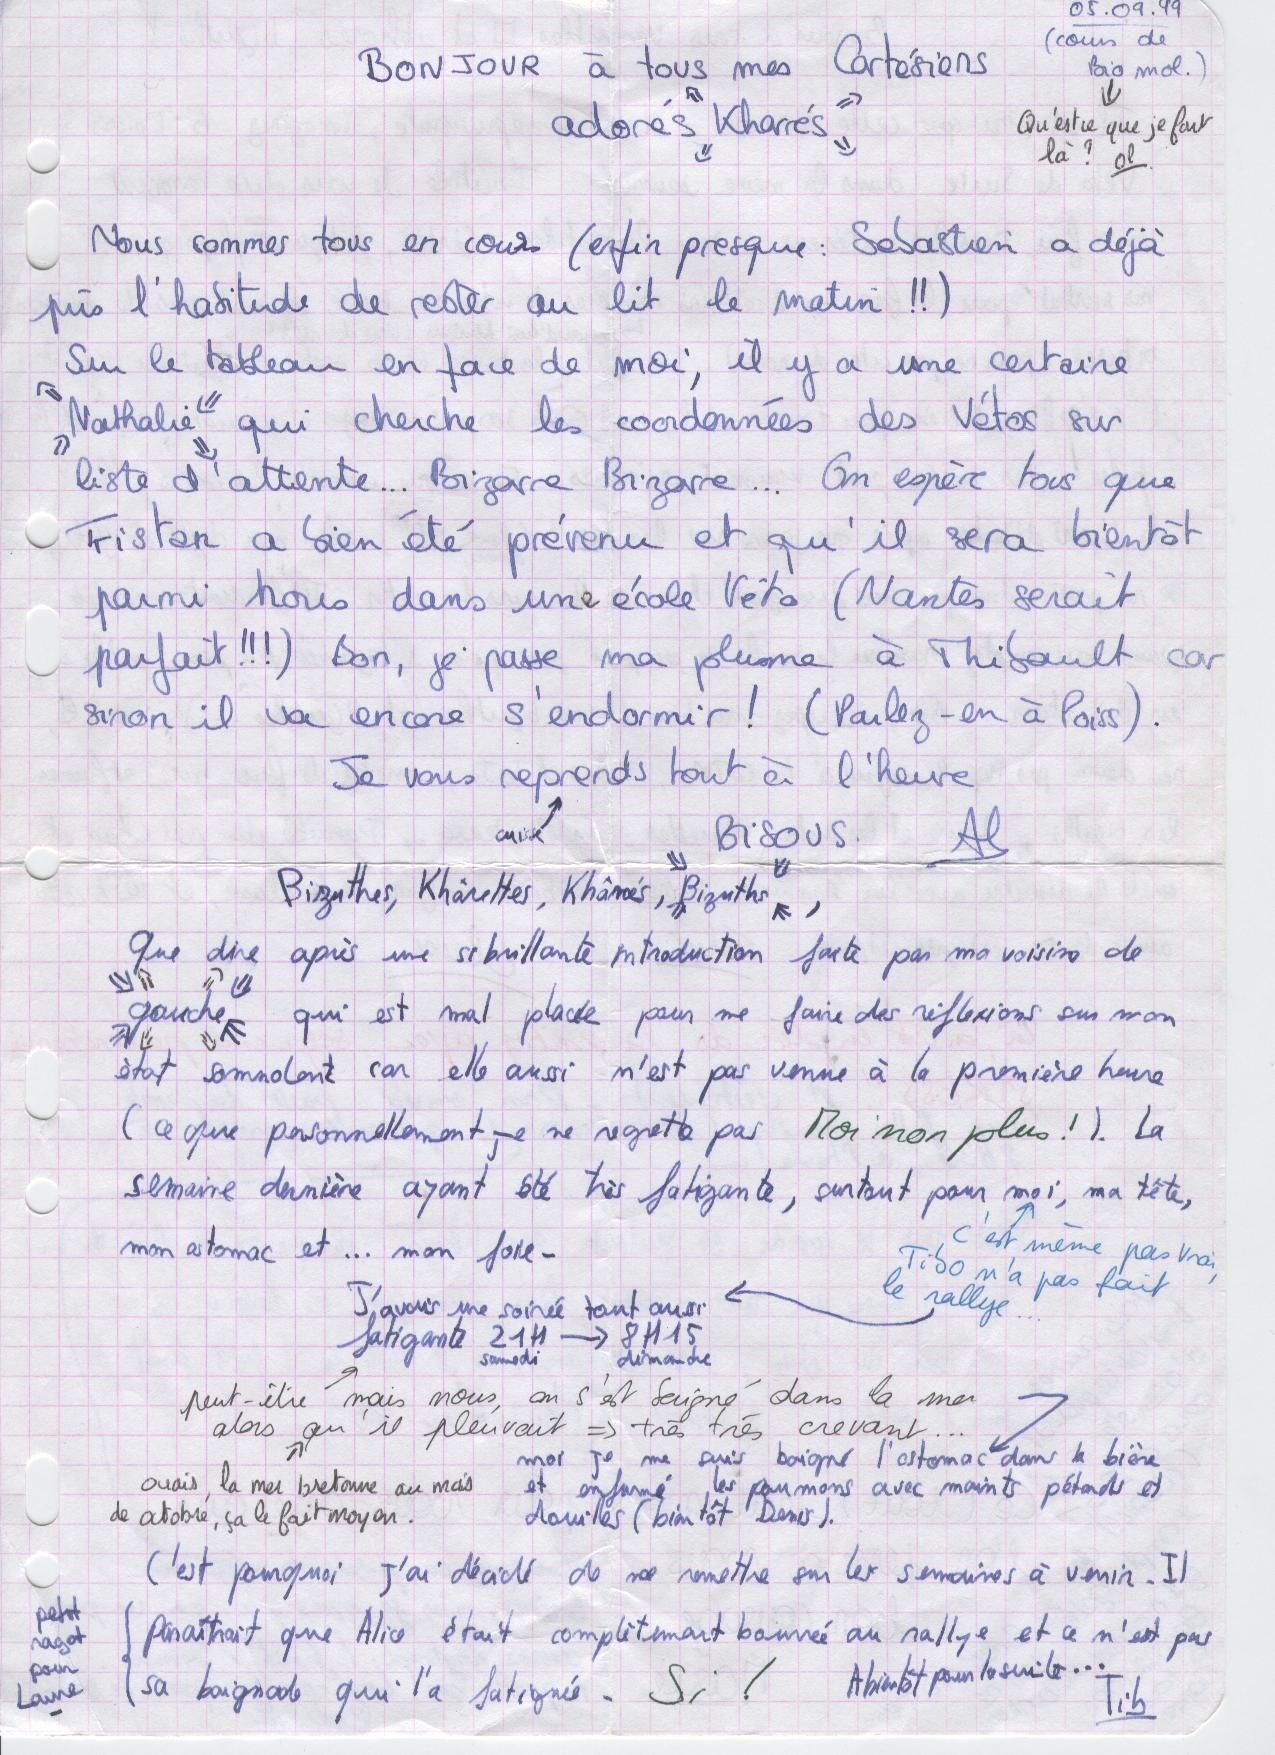 05.09.99
(cours de
Bio mol.)
Qu'estce que je fout
là ?
BONJOUR à tous mes Cartésiens
adorés Kharrés
Nous sommes tous en cours (enfin presque : Sebastien a déjà
pris l'habitude de rester au lit le matin !!)
Sur le tableau en face de moi, il y a une certaine
Nathalie qui cherche les coordonnées des Vétos sur
liste d'attente... Bizarre Bizarre... On espère tous que
Tristan a bien été prévenu et qu'il sera bientôt
parmi nous dans une école Véto (Nantes serait
parfait !!!) Bon, je passe ma plume à Thibault car
sinon il va encore s'endormir ! (Parlez-en à Poiss).
Je vous reprends tout à l'heure
BISOUS. Al
Bizuthes, Khârettes, Khârrés, Bizuths,
Que dire après une si brillante introduction faite par ma voisine de
gauche qui est mal placée pour me faire des réflexions sur mon
état somnolent car elle aussi n'est pas venue à la première heure
(ce que personnellement je ne regrette pas Moi non plus !). La
semaine dernière ayant été très fatigante, surtout pour moi, ma tête,
mon estomac et ... mon foie-
C'est même pas vrai,
Tibo n'a pas fait
le rallye...
J'avais une soirée tout aussi
fatigante 21H → 8H15
samedi dimanche
peut-être mais nous, on s'est baigné dans la mer
alors qu'il pleuvait => très très crevant...
moi je me suis baigné l'estomac dans la bière
et enfumé les poumons avec maints pétards et
douilles (bientôt Denis).
ouais, la mer bretonne au mois
de octobre, ça le fait moyen.
C'est pourquoi j'ai décidé de me remettre sur les semaines à venir. Il
petit
ragot
pour
Laure
paraîtrait que Alice était complètement bourrée au rallye et ce n'est pas
sa baignade qui l'a fatiguée. Si !
A bientôt pour la suite...
Tib